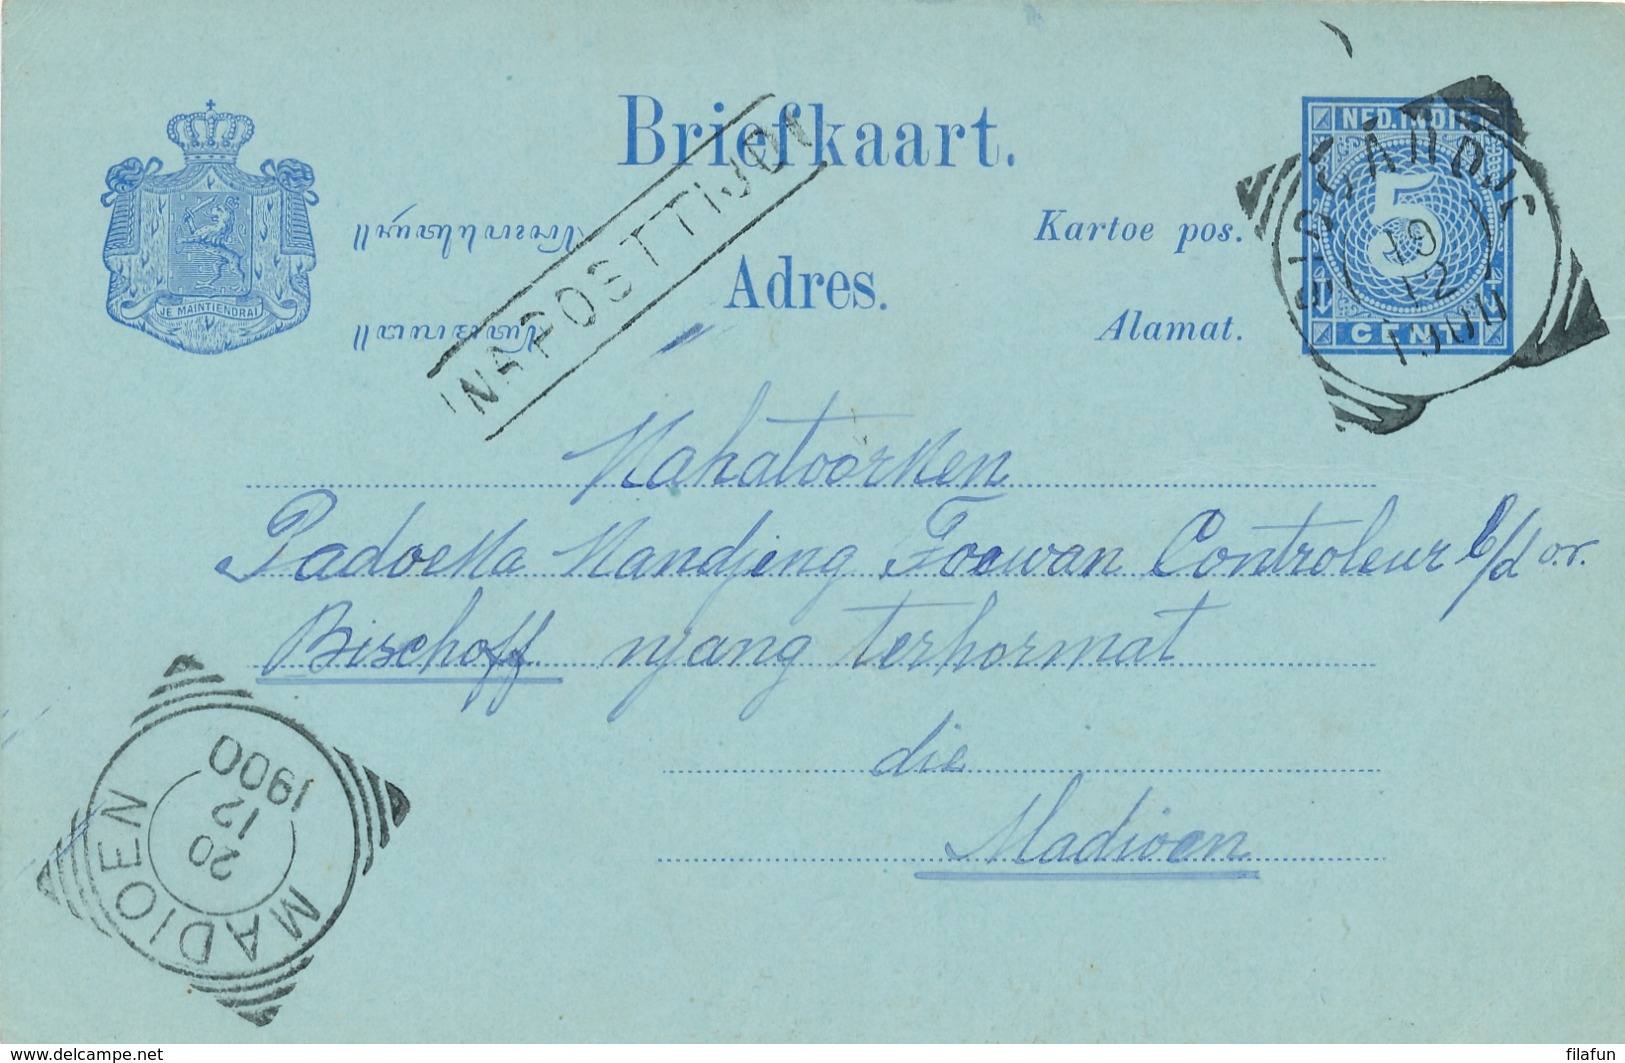 Briefkaart.
Kartoe pos.
Adres.
Alamat.
JE MAINTIENDRAI
NED. INDIË
5
CENT
19
12
1900
NAPOSTTIJD
Mahatoorken
Padoeka Kandjeng Toewan Controleur b/d o.v.
Bischoff njang terhormat
die
Madioen
MADIOEN
20
12
1900
www.delcampe.net
filafun